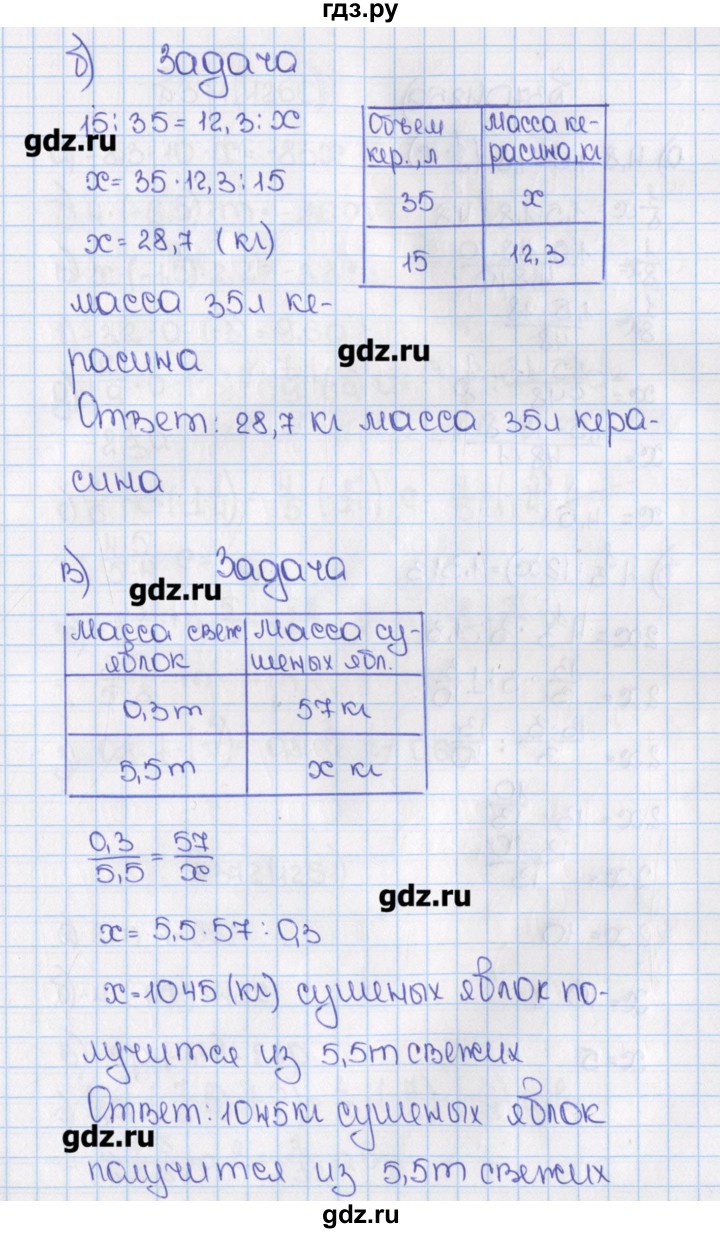 гдз.ру
б) Задача
15 : 35 = 12,3 : x
gdz.ru
x = 35 · 12,3 : 15
x = 28,7 (кг)
Объем кер., л | Масса керасина, кг
35 | x
15 | 12,3
масса 35л ке-
расина
gdz.ru
Ответ: 28,7 кг масса 35л кера-
сина
в) Задача
gdz.ru
Масса свеж яблок | Масса сушеных ябл.
0,3т | 57 кг
5,5т | x кг
0,3/5,5 = 57/x
gdz.ru
x = 5,5 · 57 : 0,3
x = 1045 (кг) сушеных яблок по-
лучится из 5,5т свежих
Ответ: 1045кг сушеных яблок
gdz.ru
получится из 5,5т свежих
gdz.ru